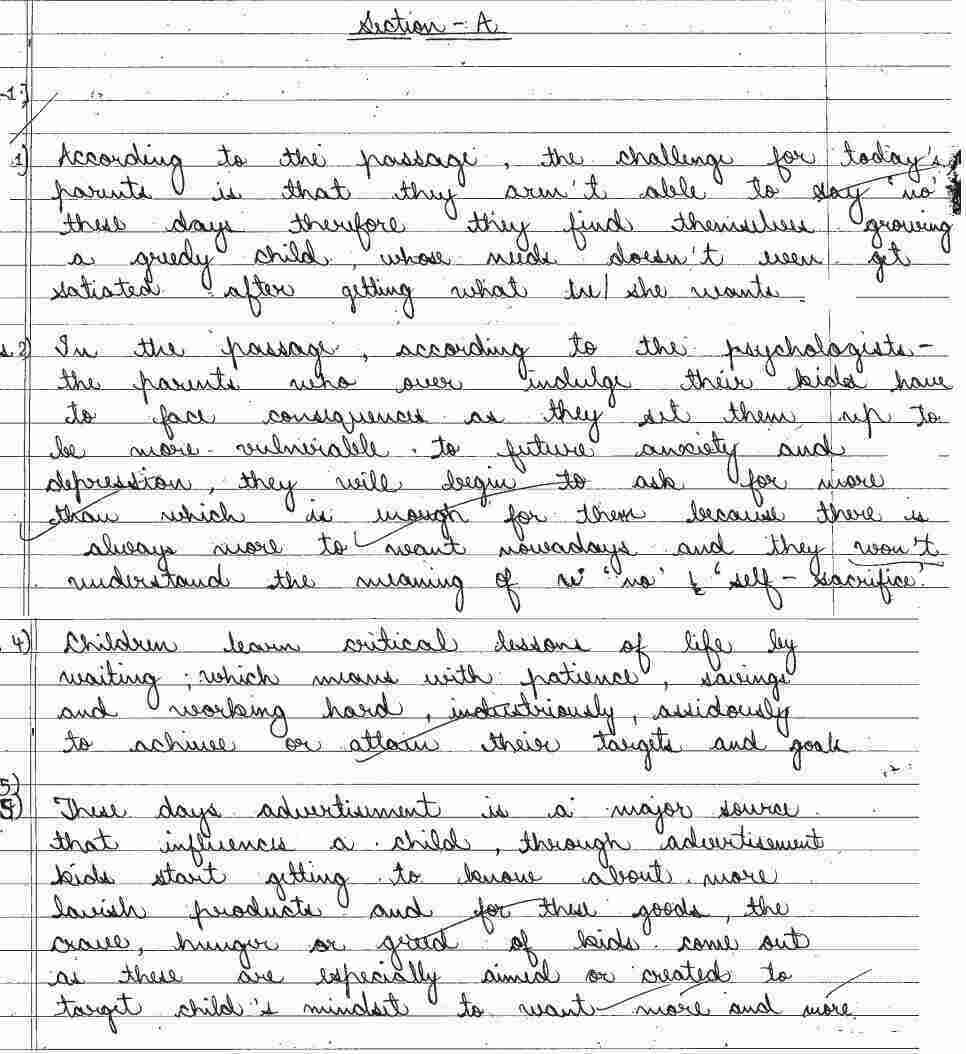 Section - A
1)
1) According to the passage, the challenge for today's
parents is that they aren't able to say 'no'
these days therefore they find themselves growing
a greedy child, whose needs doesn't even get
satiated after getting what he/she wants.
2) In the passage, according to the psychologists -
the parents who over indulge their kids have
to face consequences as they set them up to
be more vulnerable to future anxiety and
depression, they will begin to ask for more
than which is enough for them because there is
always more to want nowadays and they won't
understand the meaning of 'no' & 'self-sacrifice'.
4) Children learn critical lessons of life by
waiting; which means with patience, savings
and working hard, industriously, assidously
to achieve or attain their targets and goals
5)
5) These days advertisment is a major source
that influences a child, through advertisement
kids start getting to know about more
lavish products and for these goods, the
crave, hunger or greed of kids come out
as these are especially aimed or created to
target child's mindset to want more and more.